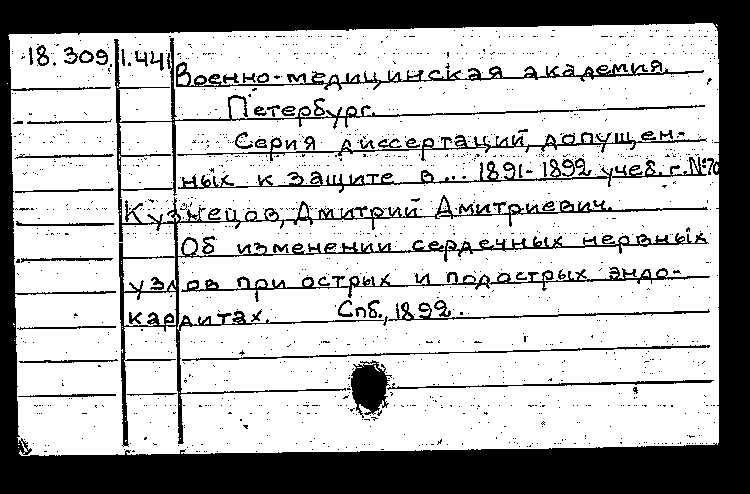 18.309. 1.441 Военно-медицинская академия.
Петербург.
Серия диссертаций, допущен-
ных к защите в... 1891-1892 учеб. г. №70
Кузнецов, Дмитрий Дмитриевич.
Об изменении сердечных нервных
узлов при острых и подострых эндо-
кардитах. Спб., 1892.